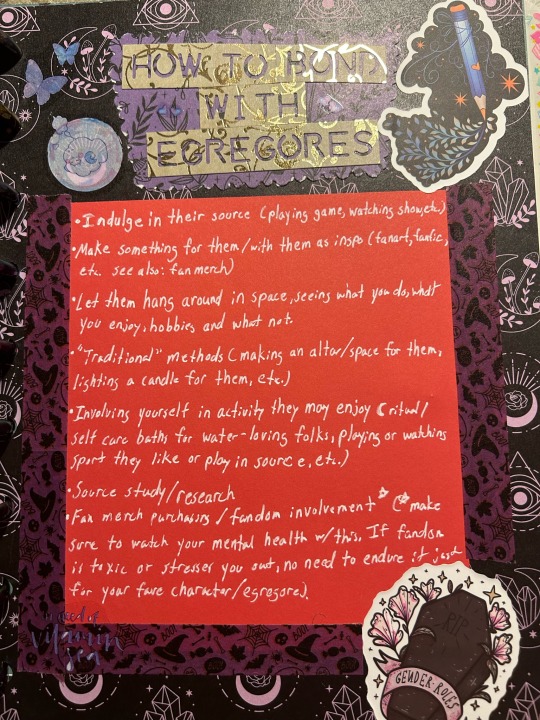 HOW TO BOND
WITH
EGREGORES
•Indulge in their source (playing game, watching show, etc.)
•Make something for them/with them as inspo (fanart, fanfic,
etc. see also: fan merch)
•Let them hang around in space, seeing what you do, what
you enjoy, hobbies and what not.
•"Traditional" methods (making an altar/space for them,
lighting a candle for them, etc.)
•Involving yourself in activity they may enjoy (ritual/
self care baths for water-loving folks, playing or watching
sport they like or play in source, etc.)
•Source study/research
•Fan merch purchasing / fandom involvement * (* make
sure to watch your mental health w/ this. If fandom
is toxic or stresses you out, no need to endure it just
for your fave character/egregore).
in need of
vitamin
sea
RIP
GENDER-ROLES